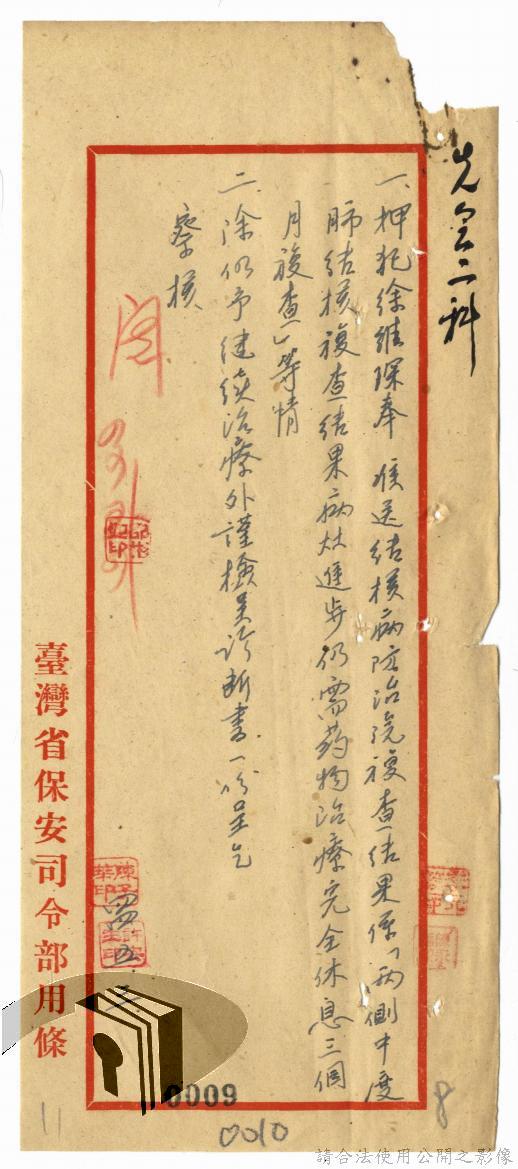 先呈二科
一、押犯徐維琛奉 准送結核病防治院複查結果係「兩側中度
肺結核複查結果病灶進步仍需葯物治療完全休息三個
月複查」等情
二、除仍予繼續治療外謹檢呈診斷書一份呈乞
察核
閱
臺灣省保安司令部用條
0009
0010
11
8
請合法使用公開之影像